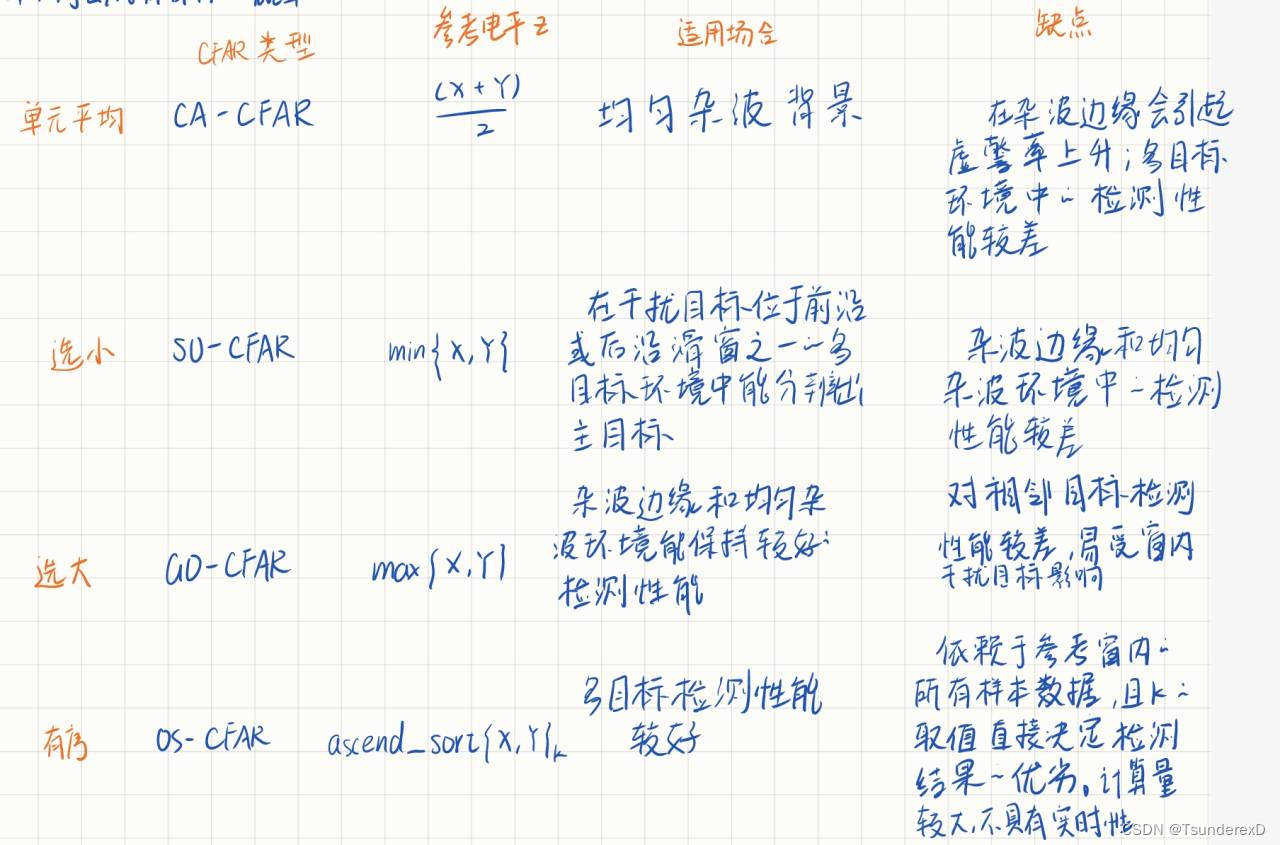 CFAR 类型 参考电平 Z 适用场合 缺点
单元平均 CA-CFAR (X+Y)/2 均匀杂波背景
在杂波边缘会引起
虚警率上升;多目标
环境中~检测性
能较差
选小 SO-CFAR min{X,Y}
在干扰目标位于前沿
或后沿滑窗之一~多
目标环境中能分辨出
主目标
杂波边缘和均匀
杂波环境中~检测
性能较差
选大 GO-CFAR max{X,Y}
杂波边缘和均匀杂
波环境能保持较好~
检测性能
对相邻目标检测
性能较差,易受窗内
干扰目标影响
有序 OS-CFAR ascend_sort{X,Y}k
多目标检测性能
较好
依赖于参考窗内~
所有样本数据,且k~
取值直接决定检测
结果~优劣。计算量
较大,不具有实时性
CSDN @TsunderexD